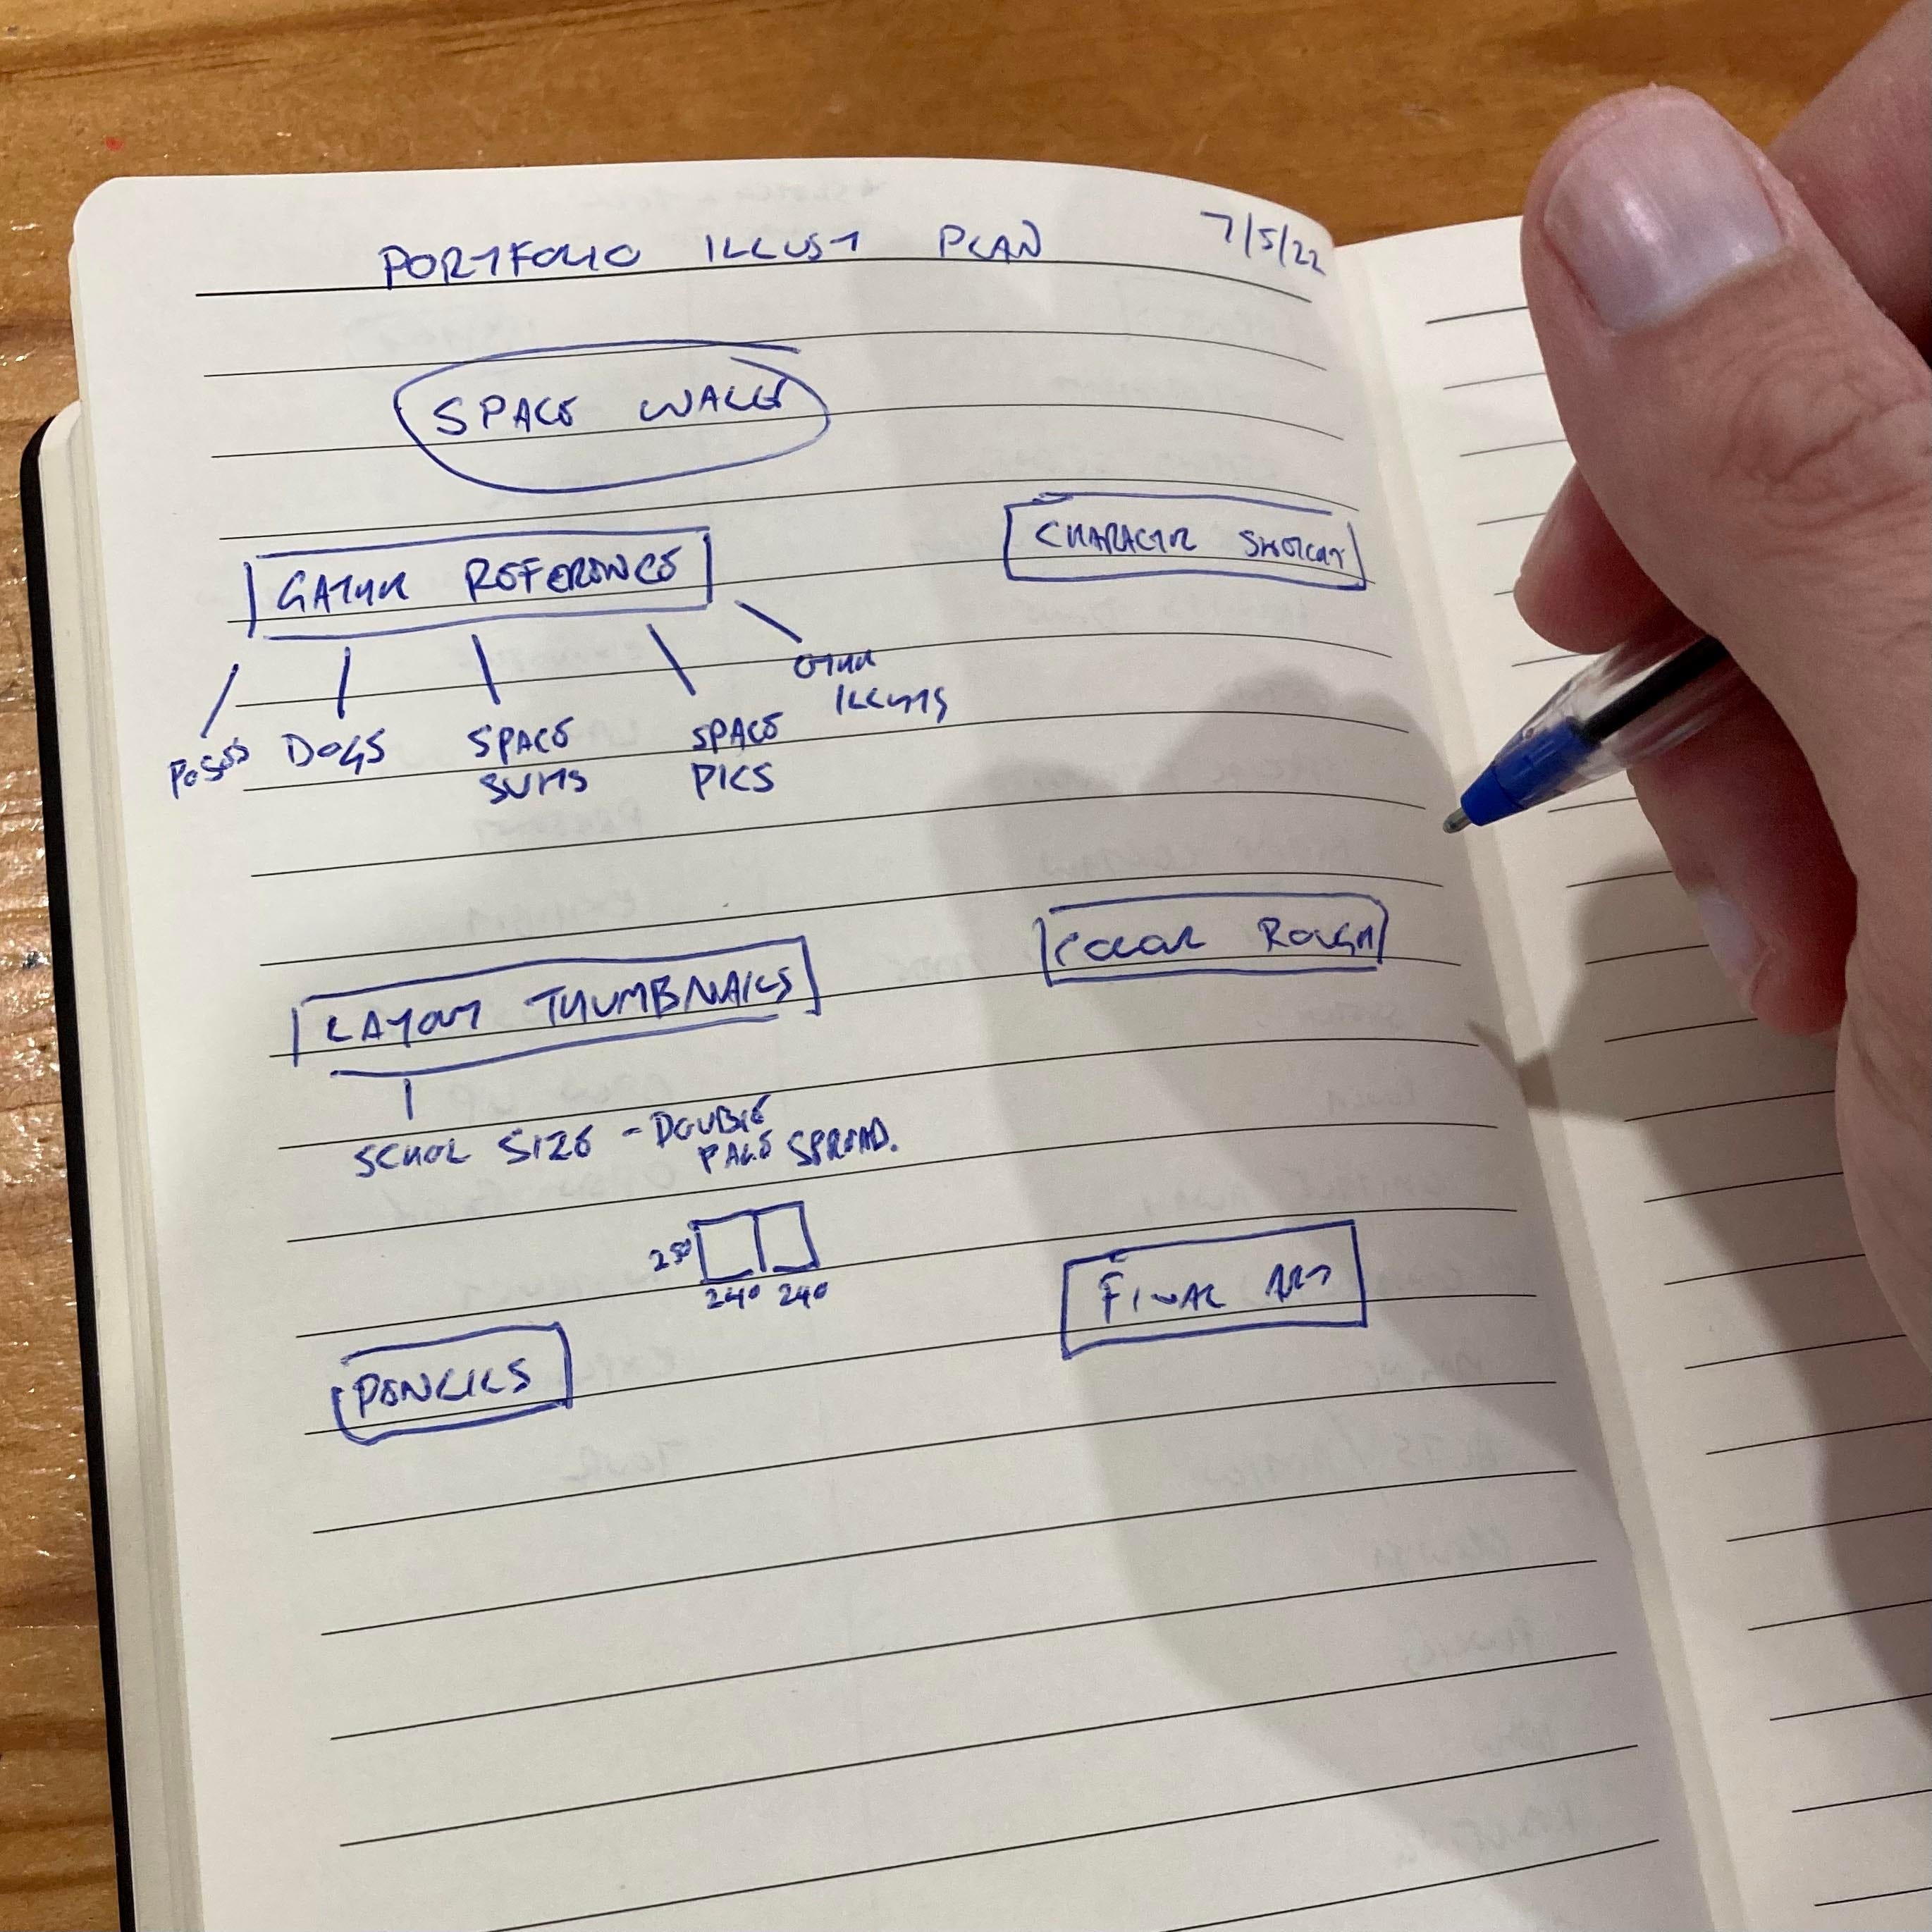 PORTFOLIO ILLUST PLAN 7/5/22
SPACE WALK
GATHER REFERENCE
POSES
DOGS
SPACE
SUITS
SPACE
PICS
OTHER
ILLUSTS
LAYOUT THUMBNAILS
SCHOOL SIZE - DOUBLE
PAGE SPREAD.
250
240 240
PENCILS
CHARACTER
COLOUR ROUGH
FINAL ART